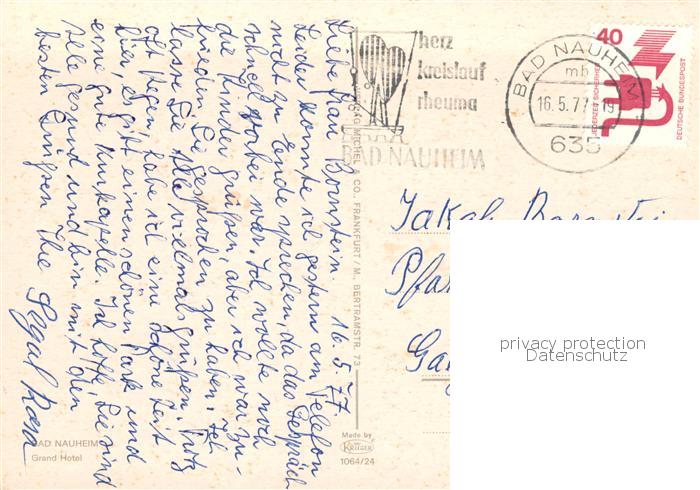 16.5.77.
Liebe Frau Bornstein.
Leider konnte ich gestern am Telefon
nicht zu Ende sprechen, da das Gespräch
schnell vorbei war. Ich wollte noch
die Kinder grüßen, aber ich war zu-
frieden Sie gesprochen zu haben. Ich
lasse Sie alle vielmals grüßen. Trotz
oft Regen, habe ich eine schöne Zeit
hier, es gibt einen schönen Park und
eine gute Kurkapelle. Ich hoffe, Sie sind
alle gesund und bin mit den
besten Grüßen Ihre
herz
kreislauf
rheuma
BAD NAUHEIM
BAD NAUHEIM
mb
16.5.77-19
635
40
JEDERZEIT SICHERHEIT
DEUTSCHE BUNDESPOST
Jakob
privacy protection
Datenschutz
MICHEL & CO., FRANKFURT/M., BERTRAMSTR. 73
Made by
KRÜGER
1064/24
BAD NAUHEIM
Grand Hotel